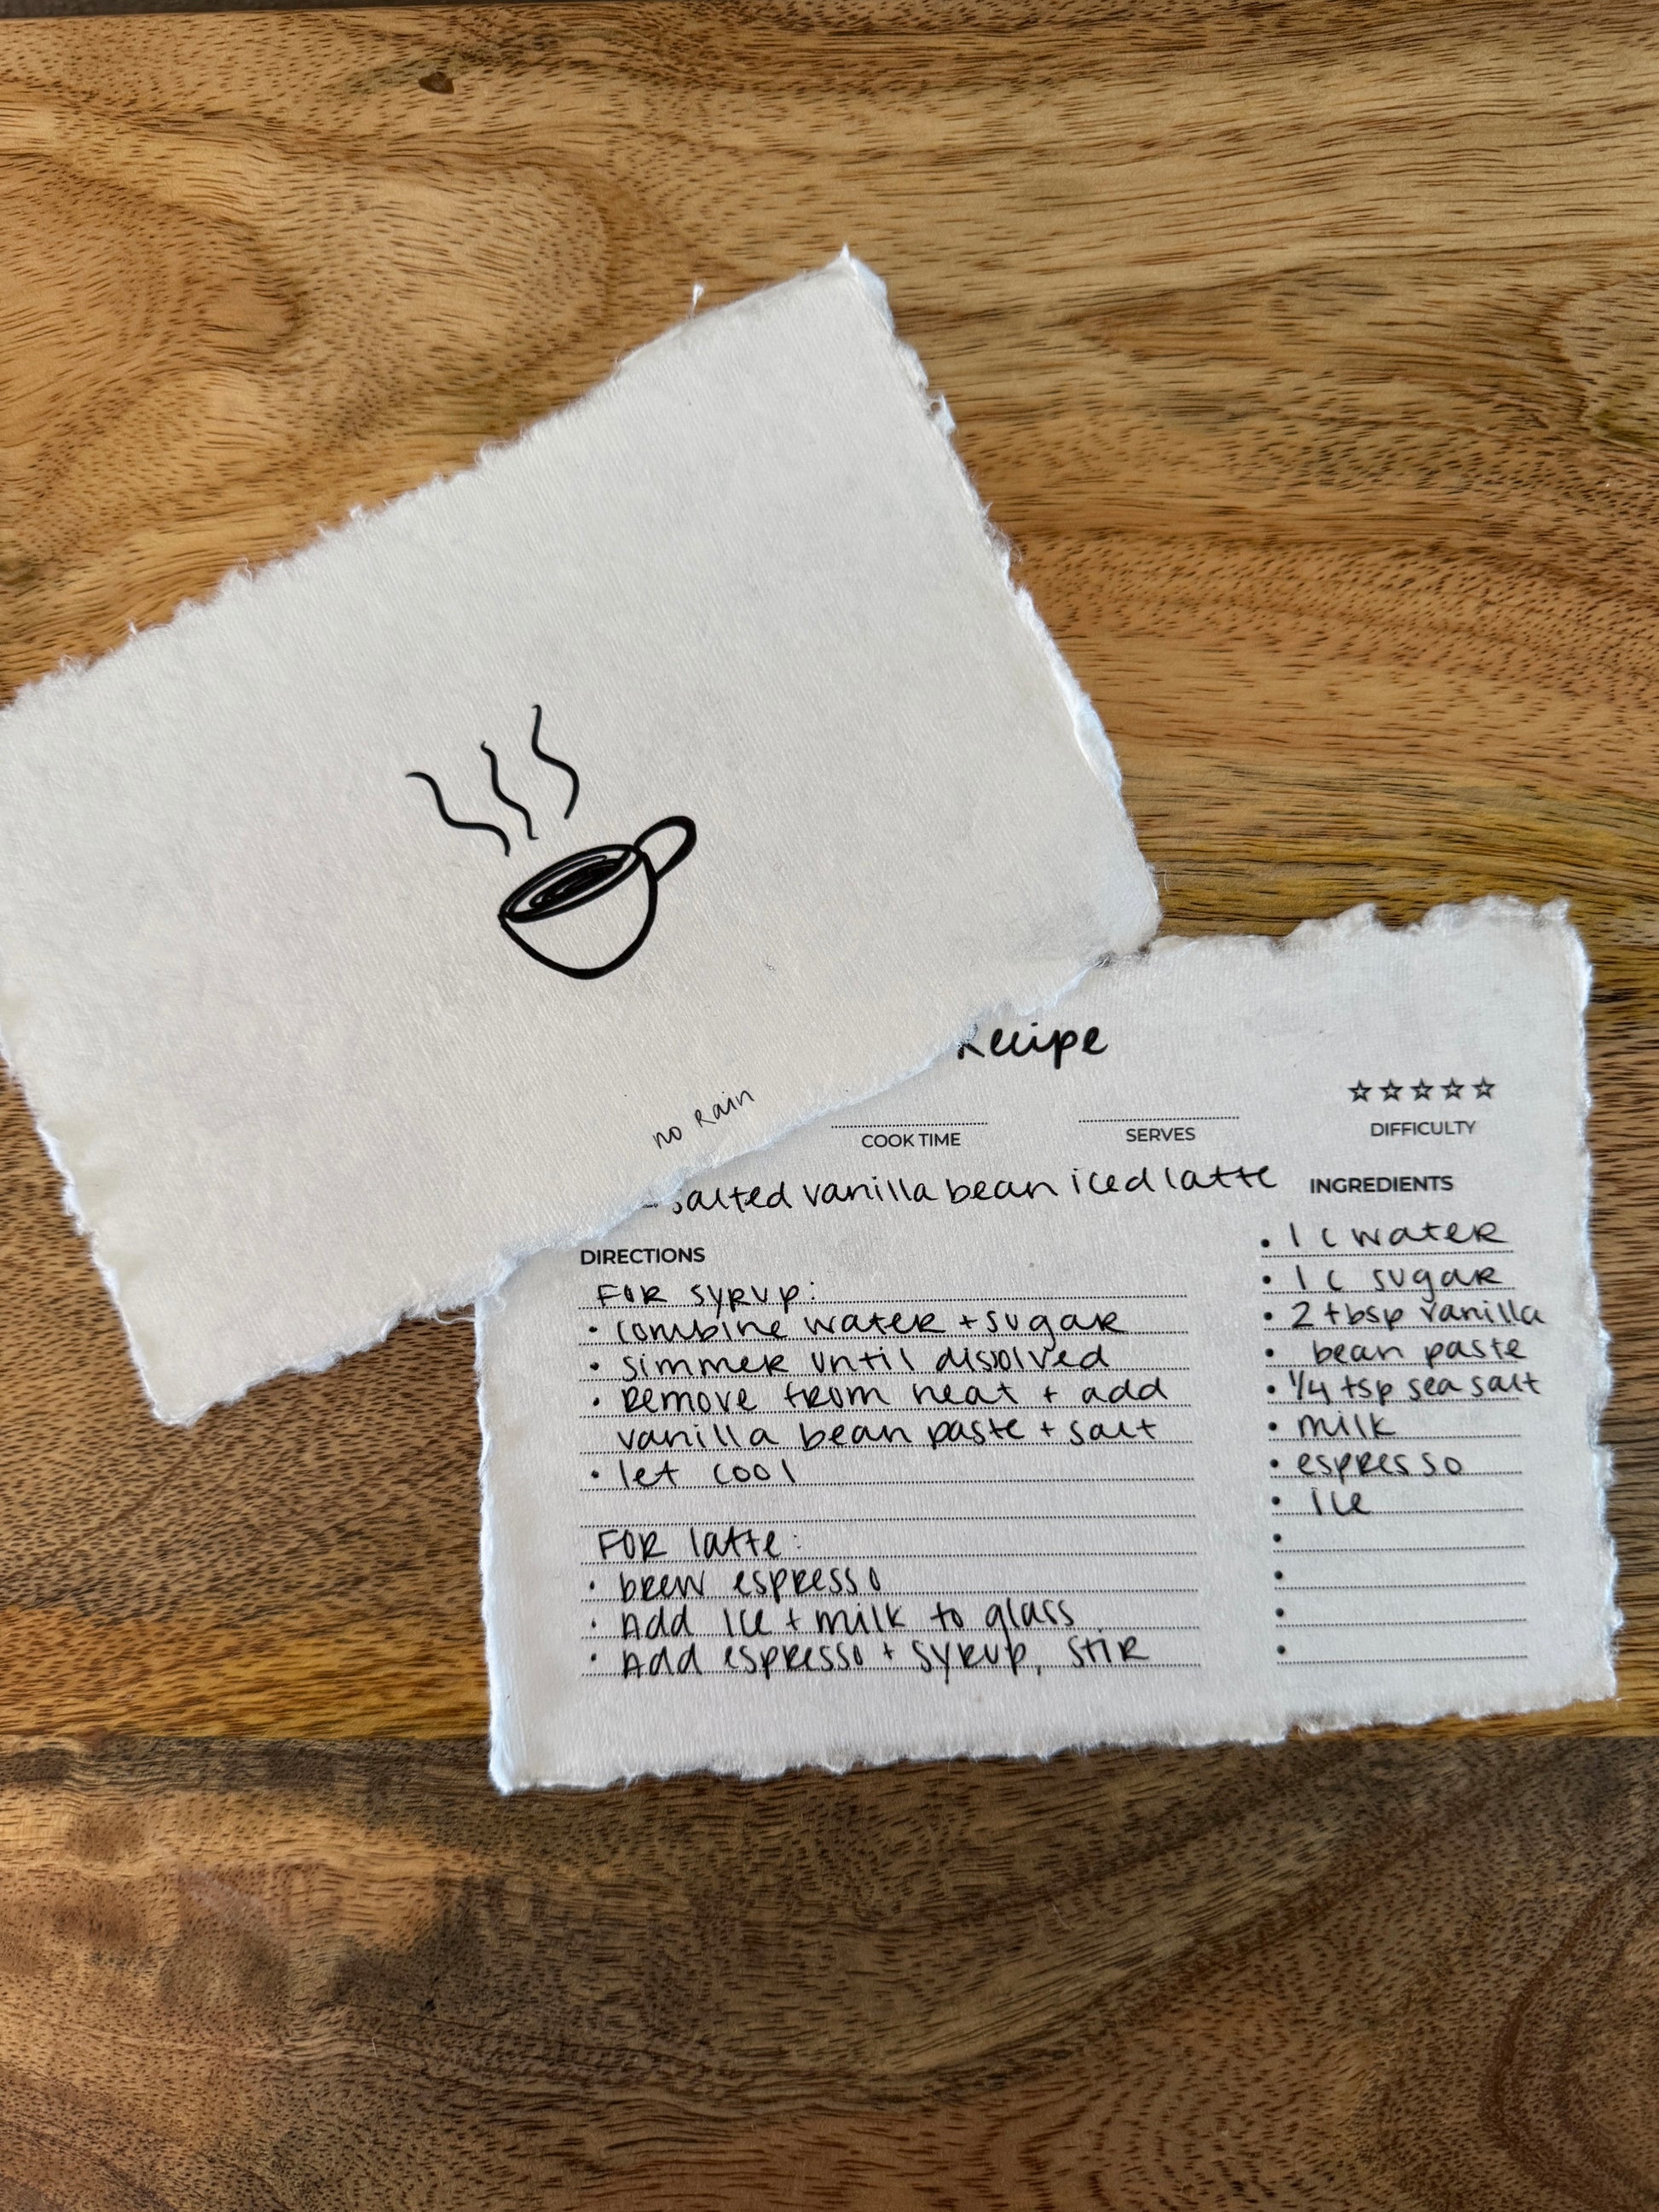 no Rain
Recipe
COOK TIME
SERVES
DIFFICULTY
salted vanilla bean iced latte
DIRECTIONS
FOR syrup:
• combine water + sugar
• simmer until disolved
• Remove from heat + add
vanilla bean paste + salt
• let cool
FOR latte:
• brew espresso
• Add Ice + milk to glass
• Add espresso + syrup, stir
INGREDIENTS
• 1 c water
• 1 c sugar
• 2 tbsp vanilla
• bean paste
• 1/4 tsp sea salt
• milk
• espresso
• ice